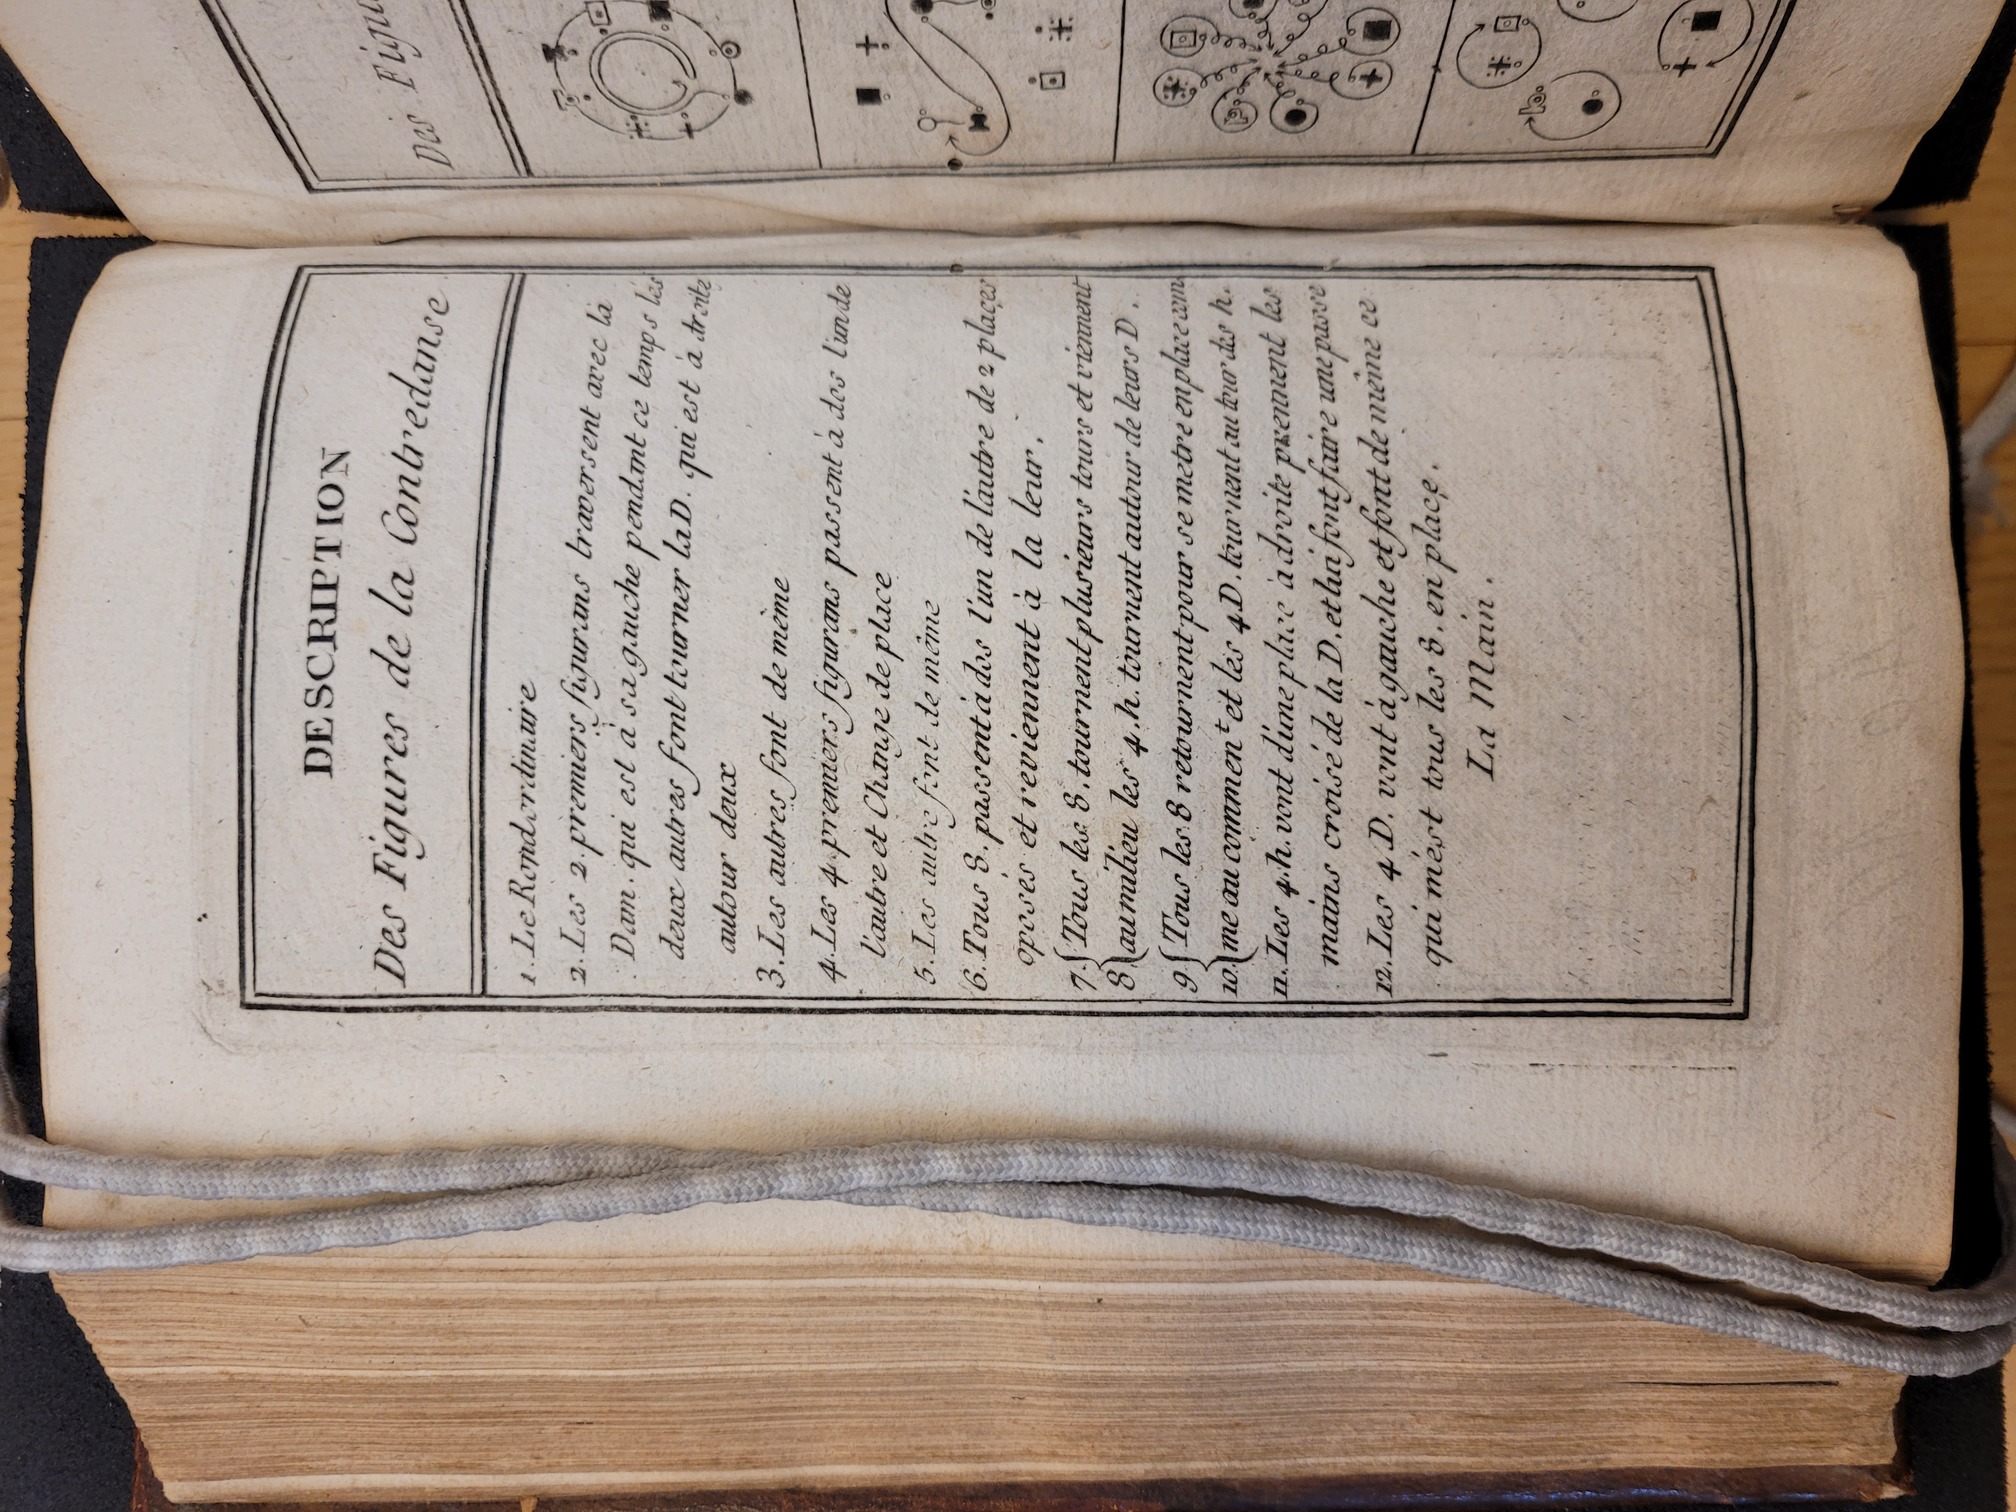 Des Figu
DESCRIPTION
Des Figures de la Contredanse
1. Le Rond ordinaire
2. Les 2. premiers figurans traversent avec la
Dam. qui est à sa gauche pendant ce temps les
deux autres font tourner la D. qui est à droite
autour deux
3. Les autres font de mème
4. Les 4 premiers figurans passent à dos l'un de
l'autre et Change de place
5. Les autre font de mème
6. Tous 8. passent à dos l'un de l'autre de 2 plaçes
oposés et reviennent à la leur.
7. Tous les 8. tournent plusieurs tours et viennent
8. au milieu les 4. h. tournent autour de leurs D.
9 Tous les 8 retournent pour se metre en place com
10. me au comment et les 4 D. tournent autour des h.
11. Les 4. h. vont d'une place à droite prennent les
mains croisé de la D. et lui font faire une passe
12. Les 4 D. vont à gauche et font de mème ce
qui m'est tous les 8. en plaçe.
La Main.